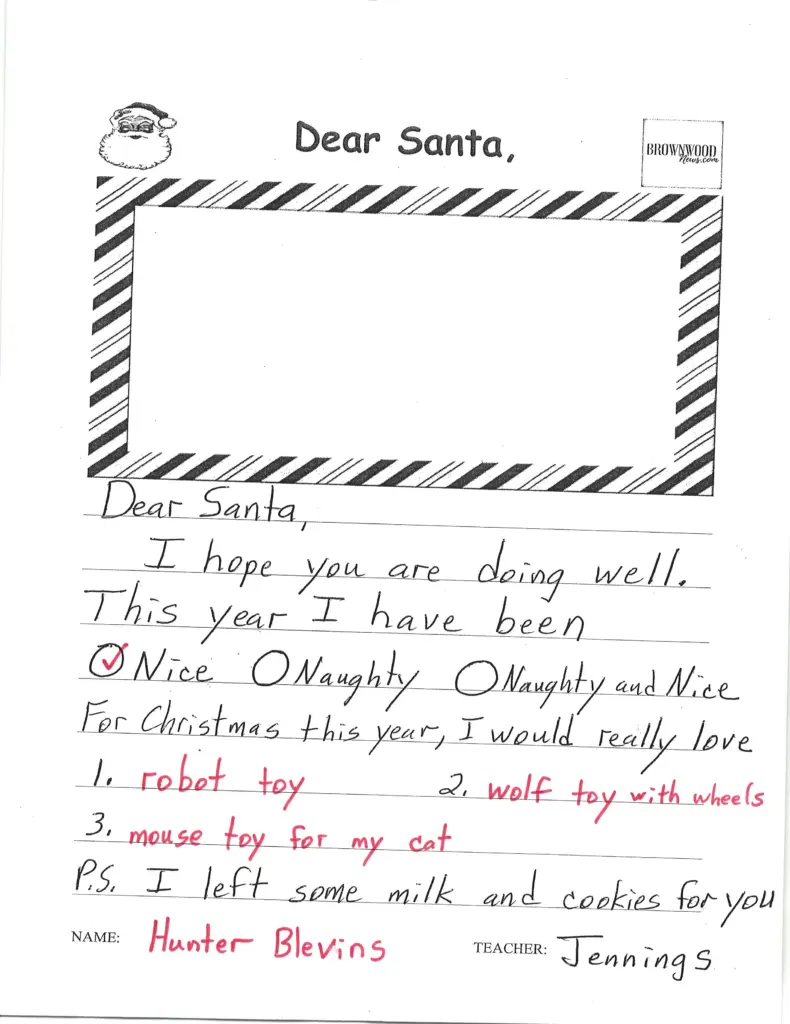 Dear Santa,
BROWNWOOD
News.com
Dear Santa,
I hope you are doing well.
This year I have been
Nice Naughty Naughty and Nice
For Christmas this year, I would really love
1. robot toy 2. wolf toy with wheels
3. mouse toy for my cat
P.S. I left some milk and cookies for you
NAME: Hunter Blevins TEACHER: Jennings